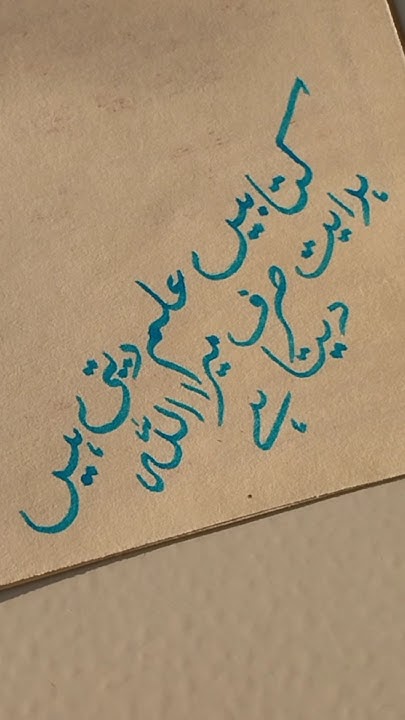 کتابیں علم دیتی ہیں
ہدایت صرف میرا اللہ
دیتا ہے